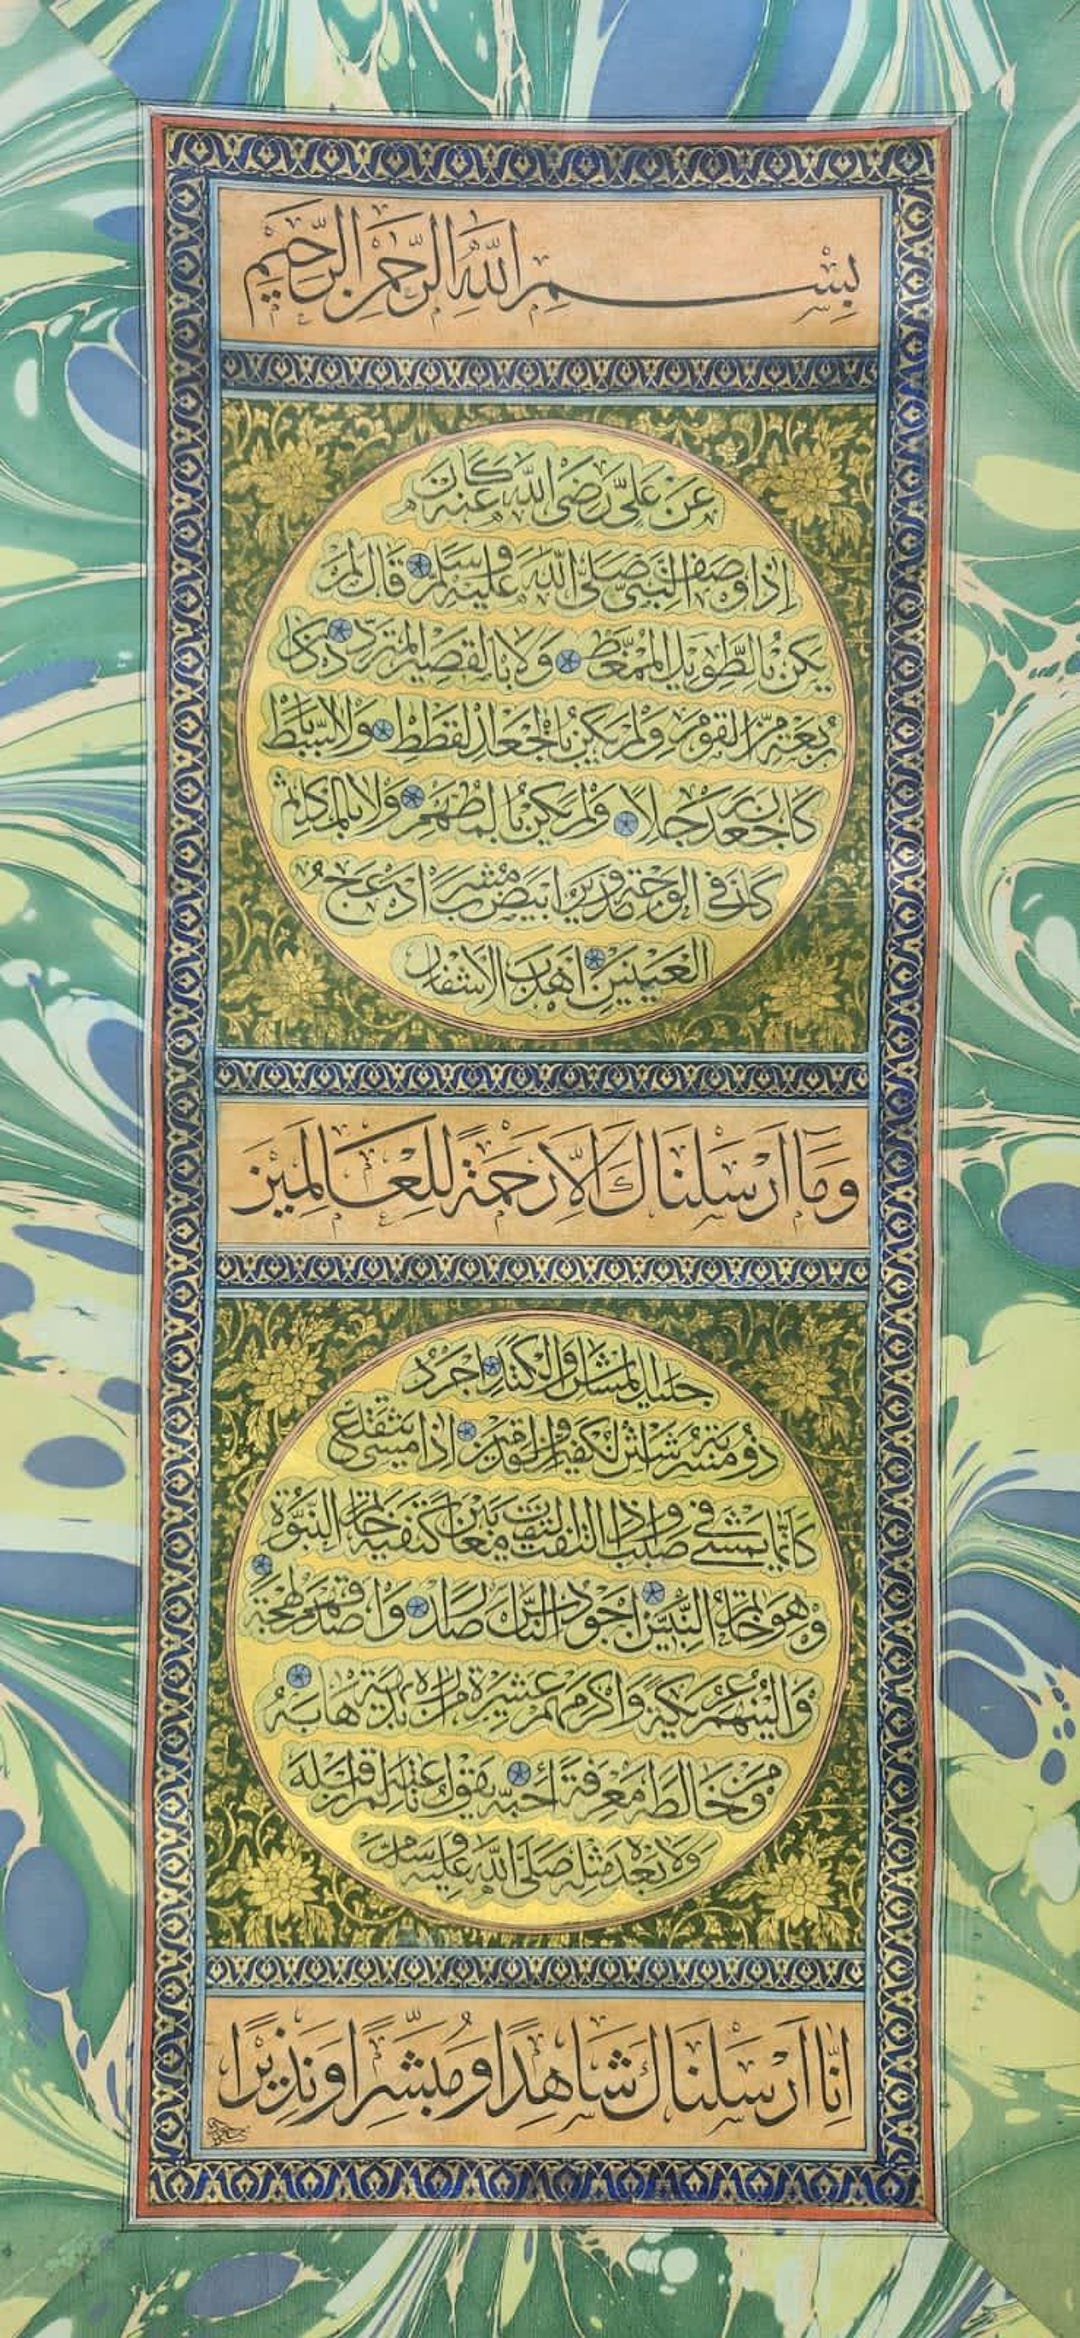 بِسْمِ اللّٰهِ الرَّحْمٰنِ الرَّحِيمِ
عَنْ عَلِيٍّ رَضِيَ اللّٰهُ عَنْهُ كَانَ
اِذَا وَصَفَ النَّبِيَّ صَلَّى اللّٰهُ عَلَيْهِ وَسَلَّمَ قَالَ لَمْ
يَكُنْ بِالطَّوِيلِ الْمُمَّغَطِ وَلَا بِالْقَصِيرِ الْمُتَرَدِّدِ كَانَ
رَبْعَةً مِنَ الْقَوْمِ وَلَمْ يَكُنْ بِالْجَعْدِ الْقَطَطِ وَلَا بِالسَّبِطِ
كَانَ جَعْدًا رَجِلًا وَلَمْ يَكُنْ بِالْمُطَهَّمِ وَلَا بِالْمُكَلْثَمِ
كَانَ فِي الْوَجْهِ تَدْوِيرٌ اَبْيَضُ مُشْرَبٌ اَدْعَجُ
الْعَيْنَيْنِ اَهْدَبُ الْاَشْفَارِ
وَمَا اَرْسَلْنَاكَ اِلَّا رَحْمَةً لِلْعَالَمِينَ
جَلِيلُ الْمُشَاشِ وَالْكَتَدِ اَجْرَدُ
ذُو مَسْرُبَةٍ شَثْنُ الْكَفَّيْنِ وَالْقَدَمَيْنِ اِذَا مَشَى يَتَقَلَّعُ
كَاَنَّمَا يَمْشِي فِي صَبَبٍ وَاِذَا الْتَفَتَ الْتَفَتَ مَعًا بَيْنَ كَتِفَيْهِ خَاتَمُ النُّبُوَّةِ
وَهُوَ خَاتَمُ النَّبِيِّينَ اَجْوَدُ النَّاسِ صَدْرًا وَاَصْدَقُهُمْ لَهْجَةً
وَاَلْيَنُهُمْ عَرِيكَةً وَاَكْرَمُهُمْ عَشِيرَةً مَنْ رَاٰهُ بَدِيهَةً هَابَهُ
وَمَنْ خَالَطَهُ مَعْرِفَةً اَحَبَّهُ يَقُولُ نَاعِتُهُ لَمْ اَرَ قَبْلَهُ
وَلَا بَعْدَهُ مِثْلَهُ صَلَّى اللّٰهُ عَلَيْهِ وَسَلَّمَ
اِنَّا اَرْسَلْنَاكَ شَاهِدًا وَمُبَشِّرًا وَنَذِيرًا